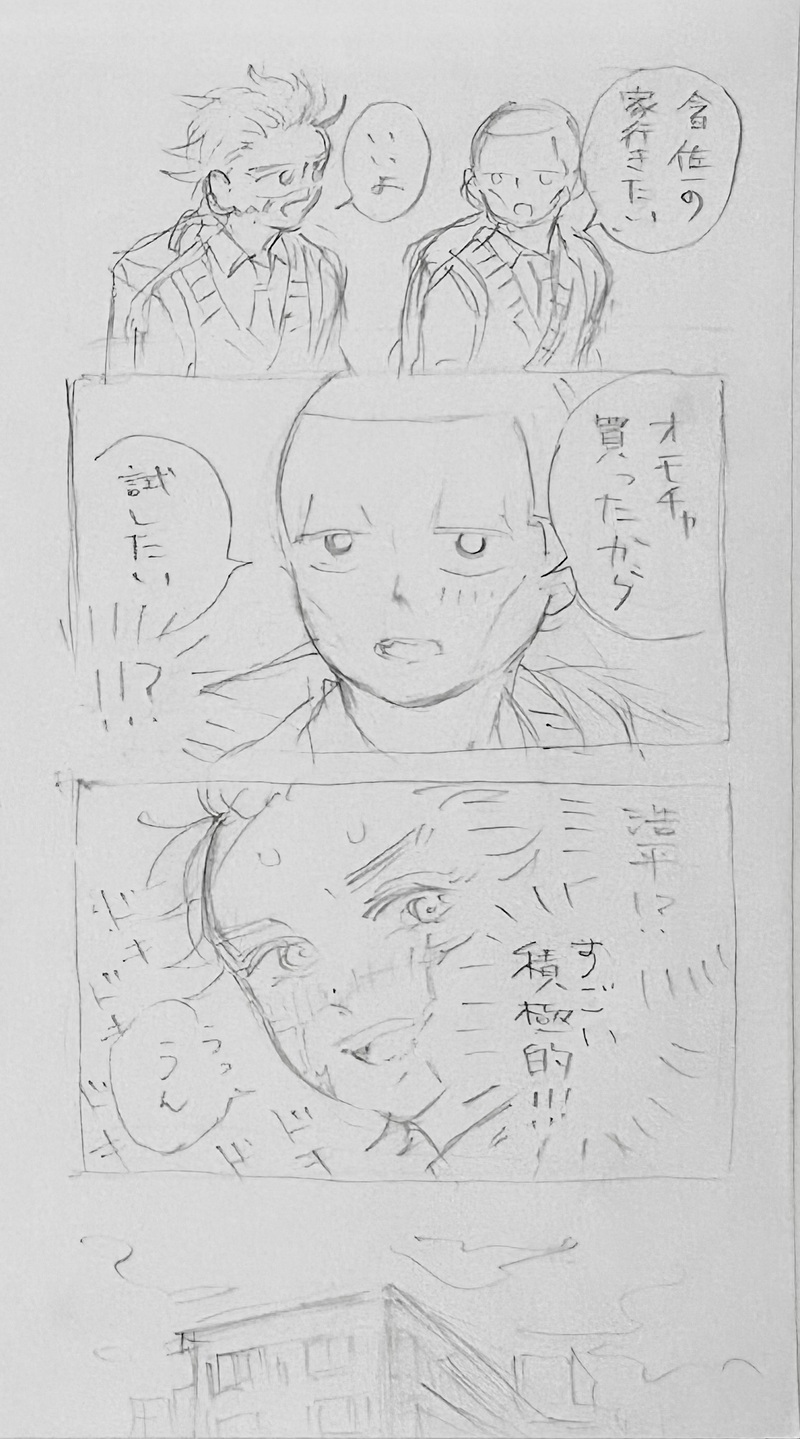 音佐の
家行きたい
いいよ
オモチャ
買ったから
試したい
!!?
浩平!?
すごい
積極的!!!
うっ
うん
ドキ
ドキ
ドキ
ドキ
ド